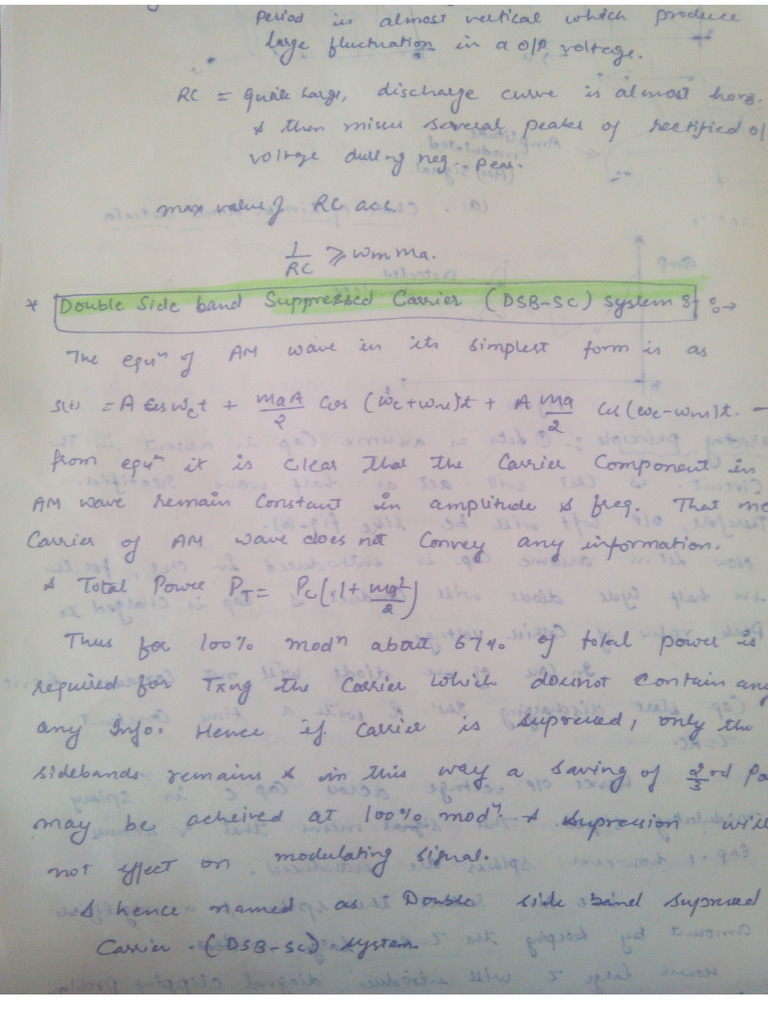 period is almost vertical which produce
large fluctuation in a o/p voltage.
RC = quite large, discharge curve is almost horz.
& then misses several peaks of rectified o/
voltage during neg. peak.
max value of RC acc.
1/RC ≥ wm ma.
* Double Side band Suppressed Carrier (DSB-SC) system :→
The equⁿ of AM wave in its simplest form is as
S(t) = A Cos wct + maA/2 Cos (wc+wm)t + A ma/2 Cos (wc-wm)t. -
from equⁿ it is clear that the Carrier Component in
AM wave remain Constant in amplitude & freq. That me
Carrier of AM wave does not Convey any information.
& Total Power PT = Pc(1+ma²/2)
Thus for 100% modⁿ about 67% of total power is
required for Txng the Carrier which doesnot Contain any
any Info. Hence if Carrier is supressed, only the
sidebands remains & in this way a saving of 2/3rd Po
may be acheived at 100% modⁿ. & supression will
not effect on modulating signal.
& hence named as Double side band Supressed
Carrier (DSB-SC) system.